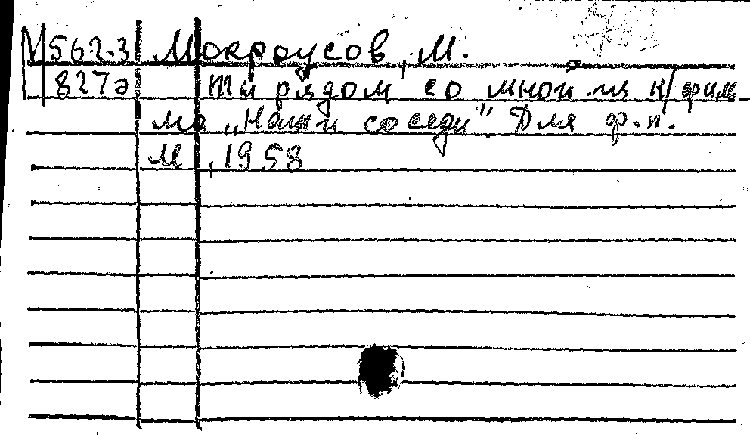 М 562-3 Мокроусов, М.
827а Ты рядом со мной из к/филь
ма „Наши соседи". Для ф.-п.
М., 1958